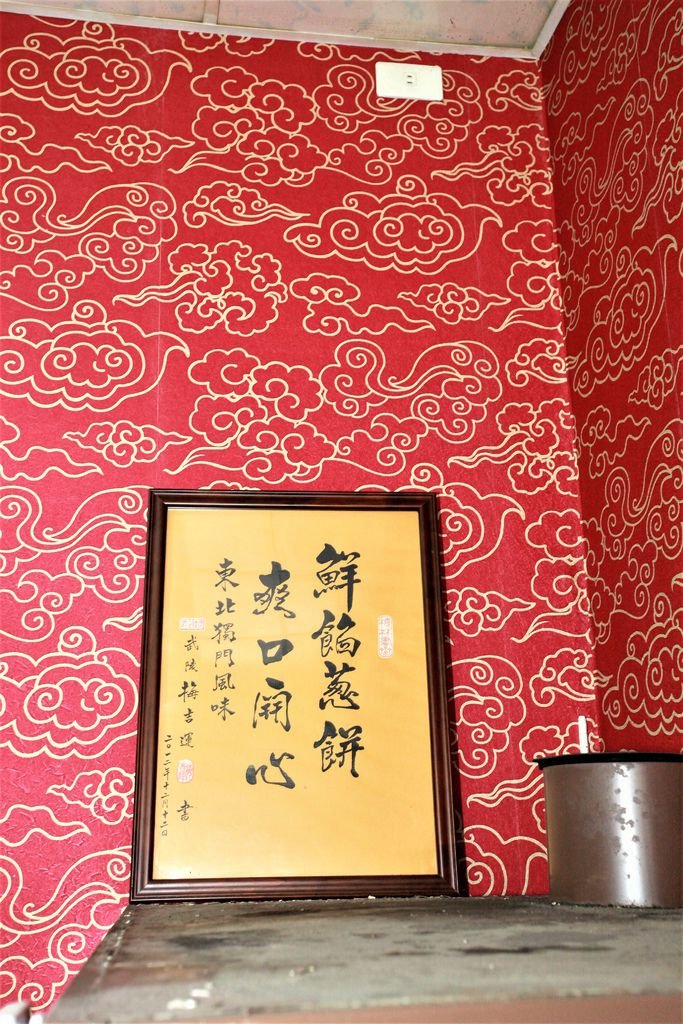 鮮餡蔥餅
爽口開心
東北獨門風味
武陵 梅吉運 書
二〇一二年十二月十二日